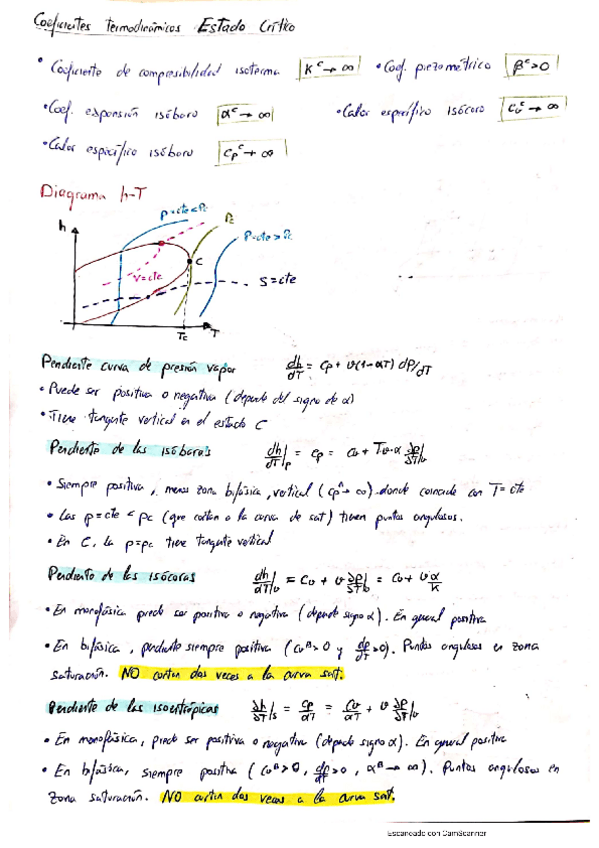 Coeficientes Termodinámicos Estado Crítico
• Coeficiente de compresibilidad isoterma K^c → ∞ • Coef. piezométrico β^c>0
• Coef. expansión isóbaro α^c → ∞ • Calor específico isócoro Cv^c → ∞
• Calor específico isóbaro Cp^c → ∞
Diagrama h-T
h
P=cte<Pc
Pc
P=cte>Pc
C
v=cte
s=cte
Tc
T
Pendiente curva de presión vapor dh/dT = Cp + v(1-αT) dP/dT
• Puede ser positiva o negativa (depende del signo de α)
• Tiene tangente vertical en el estado C
Pendiente de las isóbaras dh/dT|p = Cp = Cv + Tv·α ∂p/∂T|v
• Siempre positiva, menos zona bifásica, vertical (Cp → ∞) donde coincide con T=cte
• Las p=cte < pc (que cortan a la curva de sat) tienen puntos angulosos.
• En C, la p=pc tiene tangente vertical
Pendiente de las isócoras dh/dT|v = Cv + v ∂p/∂T|v = Cv + v α/K
• En monofásica puede ser positiva o negativa (depende signo α). En general positiva
• En bifásica, pendiente siempre positiva (Cv^B > 0 y dp/dT >0). Puntos angulosos en zona
saturación. NO cortan dos veces a la curva sat.
Pendiente de las isoentrópicas ∂h/∂T|s = Cp/αT = Cv/αT + v ∂p/∂T|v
• En monofásica, puede ser positiva o negativa (depende signo α). En general positiva
• En bifásica, siempre positiva (Cv^B>0, dp/dT>0, α^B → ∞). Puntos angulosos en
zona saturación. NO cortan dos veces a la curva sat.
Escaneado con CamScanner